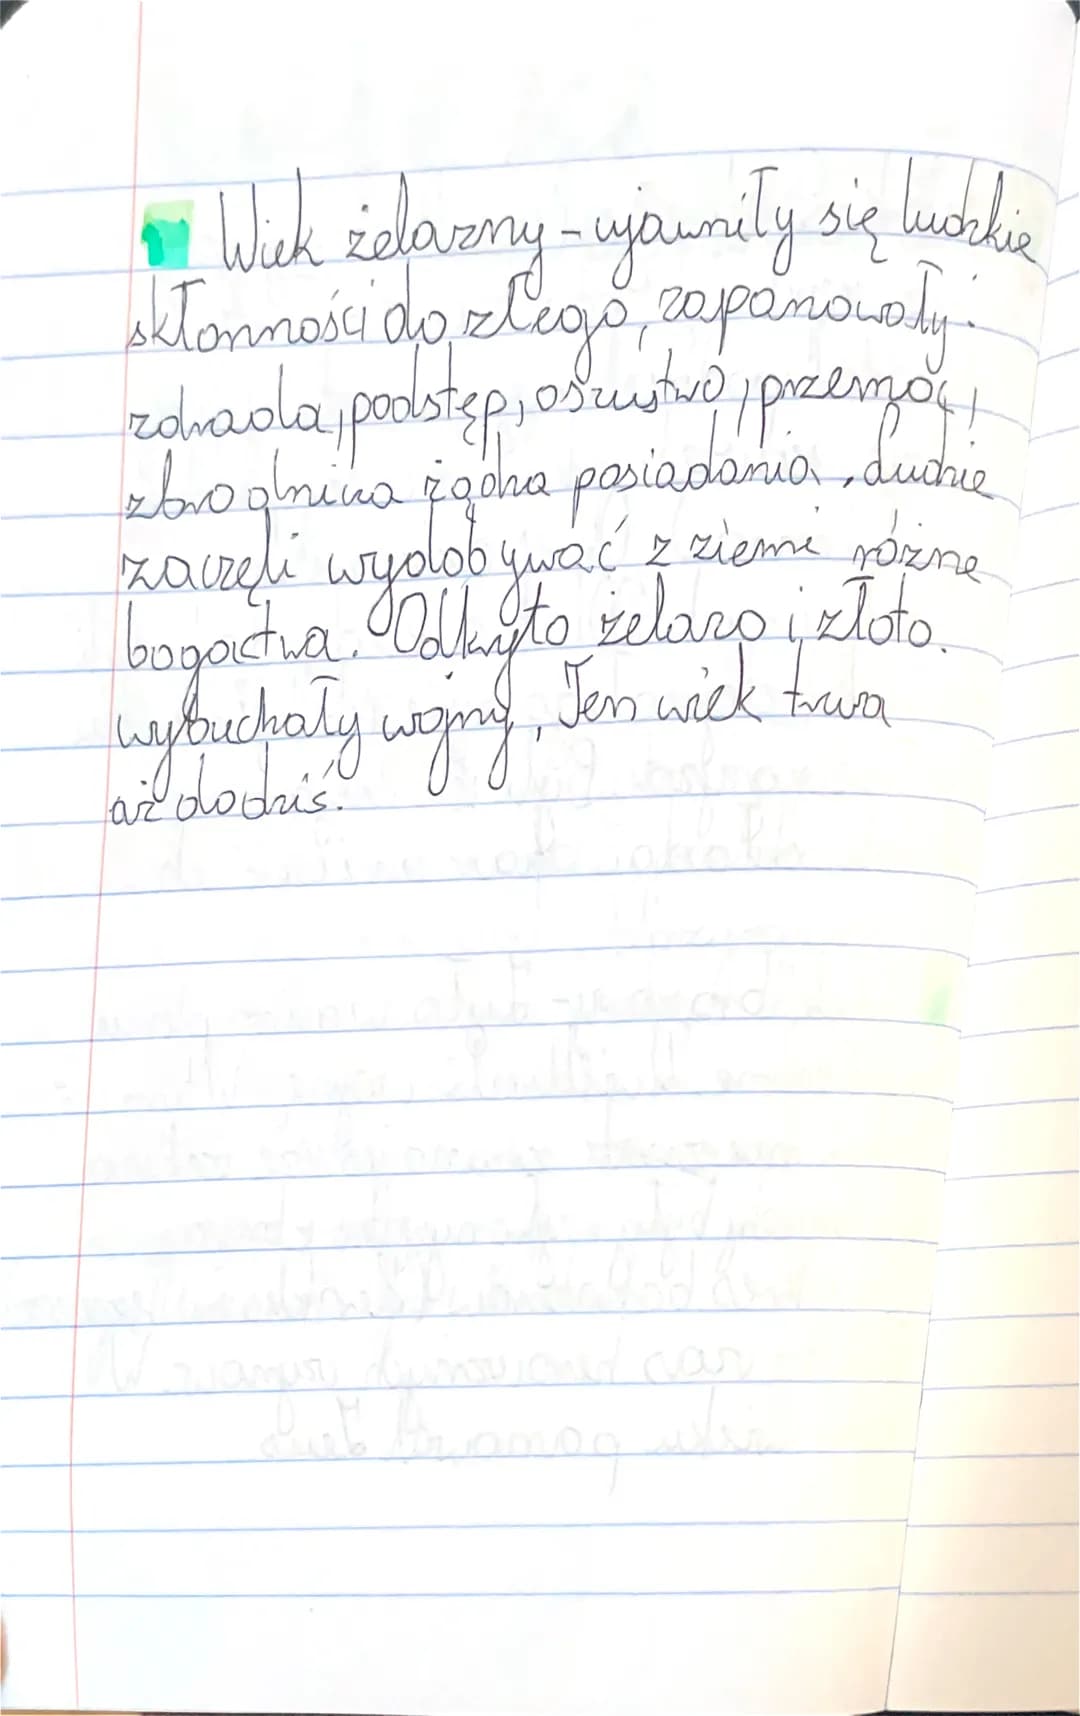 Wiek żelazny - ujawniły się ludzkie
skłonności do złego, zapanowały:
zdrada, podstęp, oszustwo, przemoc,
zbrodnicza żądza posiadania, Ludzie
zaczęli wydobywać z ziemi różne
bogactwa. Odkryto żelazo i złoto.
wybuchały wojny, Ten wiek trwa
aż do dziś.